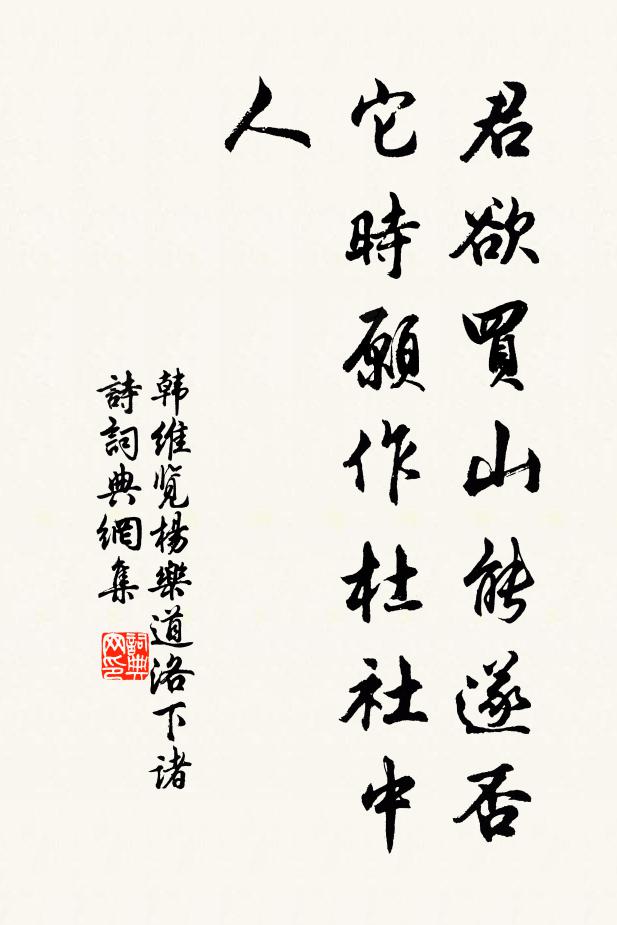 君欲買山能遂否
它時願作杜社中
人
韩維览楊樂道洛下诸
詩詞典網集
詞典网印